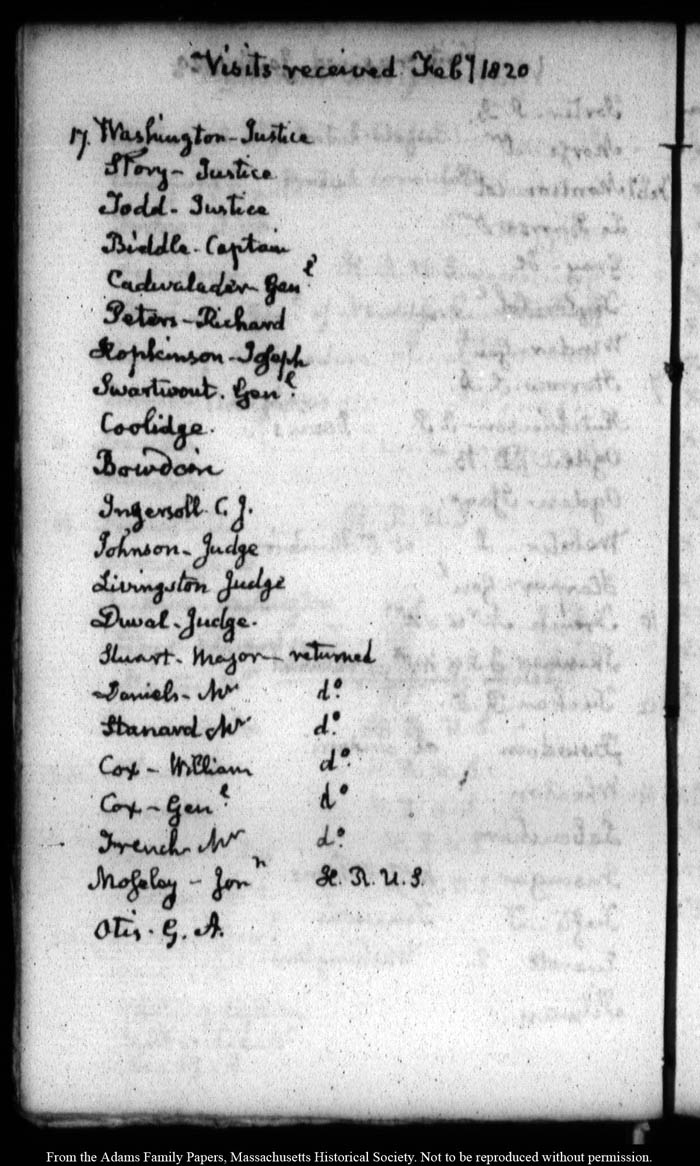 Visits received Feby 1820
17. Washington - Justice
Story - Justice
Todd - Justice
Biddle - Captain
Cadwalader - Genl
Peters - Richard
Hopkinson - Joseph
Swartwout. Genl.
Coolidge.
Bowdoin
Ingersoll. C. J.
Johnson - Judge
Livingston Judge
Duval - Judge.
Stuart - Major - returned
Daniels - Mr do.
Stanard Mr do.
Cox - William do.
Cox - Genl do.
French Mr do.
Moseley - Jonn H. R. U. S.
Otis - G. A.
From the Adams Family Papers, Massachusetts Historical Society. Not to be reproduced without permission.